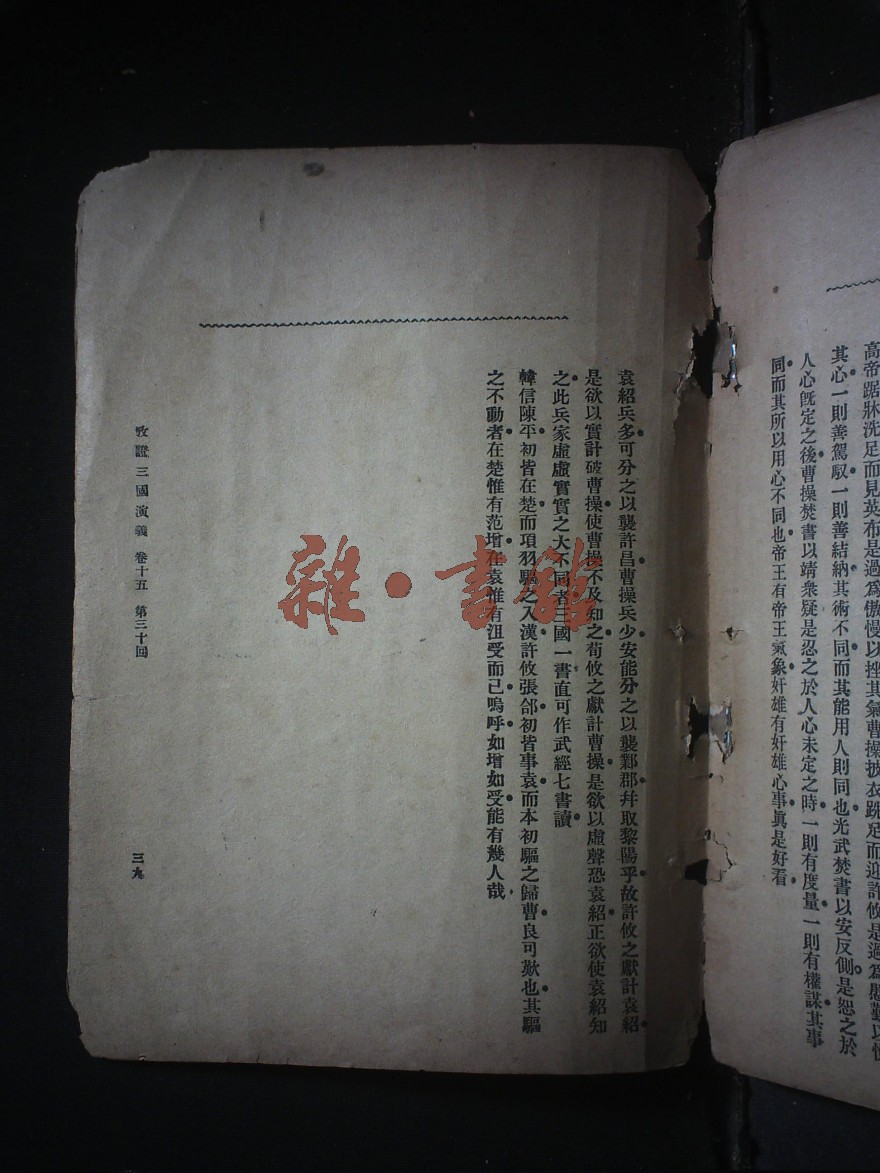 高帝踞牀洗足而見英布是過爲傲慢以挫其氣曹操披衣跣足而迎許攸是過爲慇懃以
其心一則善駕馭一則善結納其術不同而其能用人則同也光武焚書以安反側是恕之於
人心旣定之後曹操焚書以靖衆疑是忍之於人心未定之時一則有度量一則有權謀其事
同而其所以用心不同也帝王有帝王氣象奸雄有奸雄心事眞是好看
袁紹兵多可分之以襲許昌曹操兵少安能分之以襲鄴郡幷取黎陽乎故許攸之獻計袁紹
是欲以實計破曹操使曹操不及知之荀攸之獻計曹操是欲以虛聲恐袁紹正欲使袁紹知
之此兵家虛虛實實之大不同者三國一書直可作武經七書讀
韓信陳平初皆在楚而項羽驅之入漢許攸張郃初皆事袁而本初驅之歸曹良可歎也其驅
之不動者在楚惟有范增在袁惟有沮受而已嗚呼如增如受能有幾人哉
攷證三國演義 卷十五 第三十回
三九
雜·書館